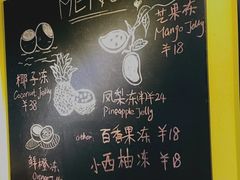 MENU
芒果冻
Mango Jelly
¥18
椰子冻
Coconut Jelly
¥38
凤梨冻 ¥24
Pineapple Jelly
other:
百香果冻 ¥18
鲜橙冻
Orange Jelly
小西柚冻 ¥18